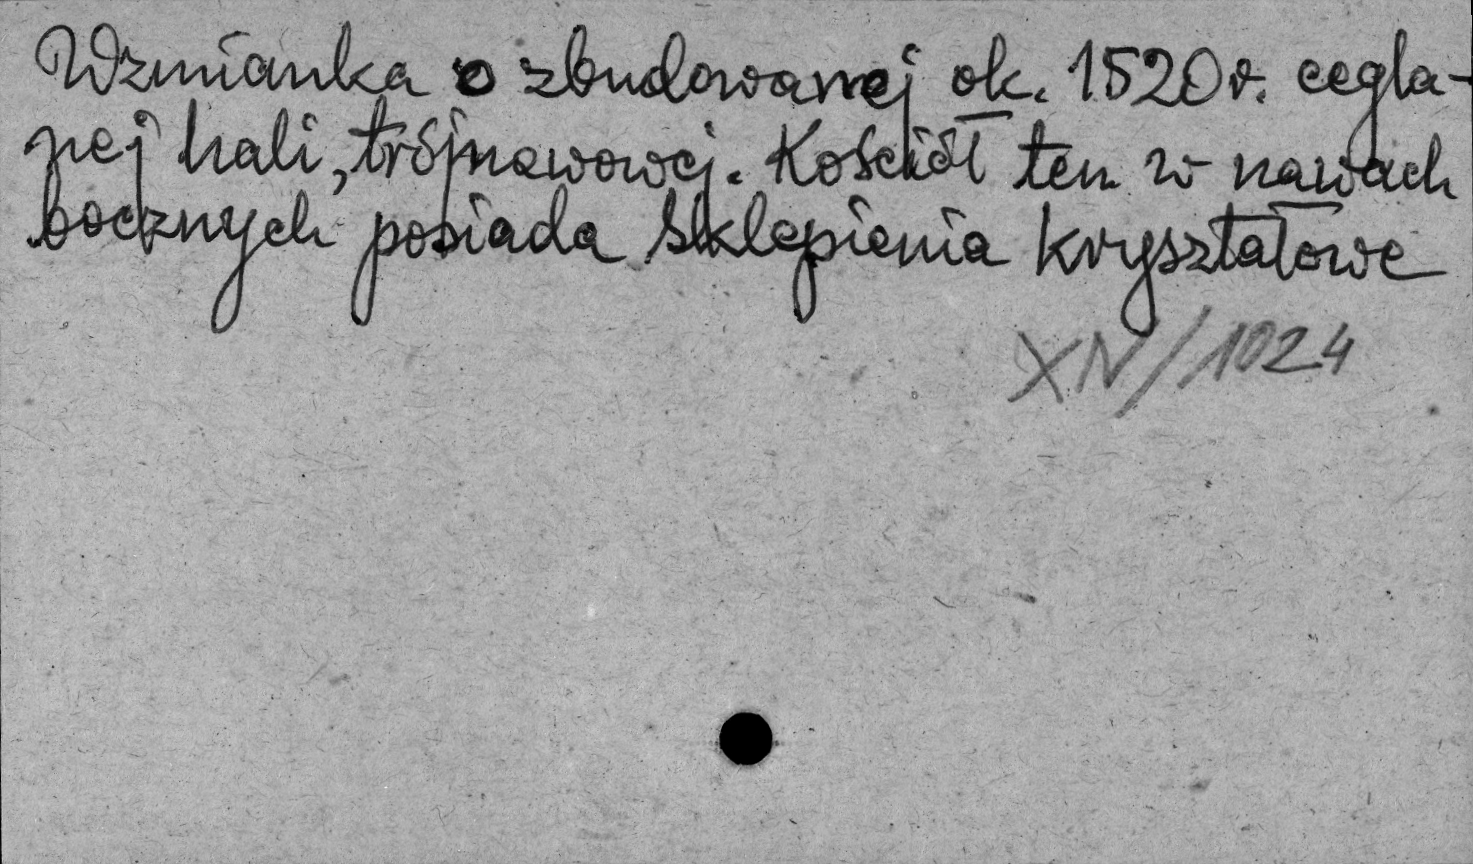 Wzmianka o zbudowanej ok. 1520 r. cegla-
nej hali, trójnawowej. Kościół ten w nawach
bocznych posiada sklepienia kryształowe
XN/1024